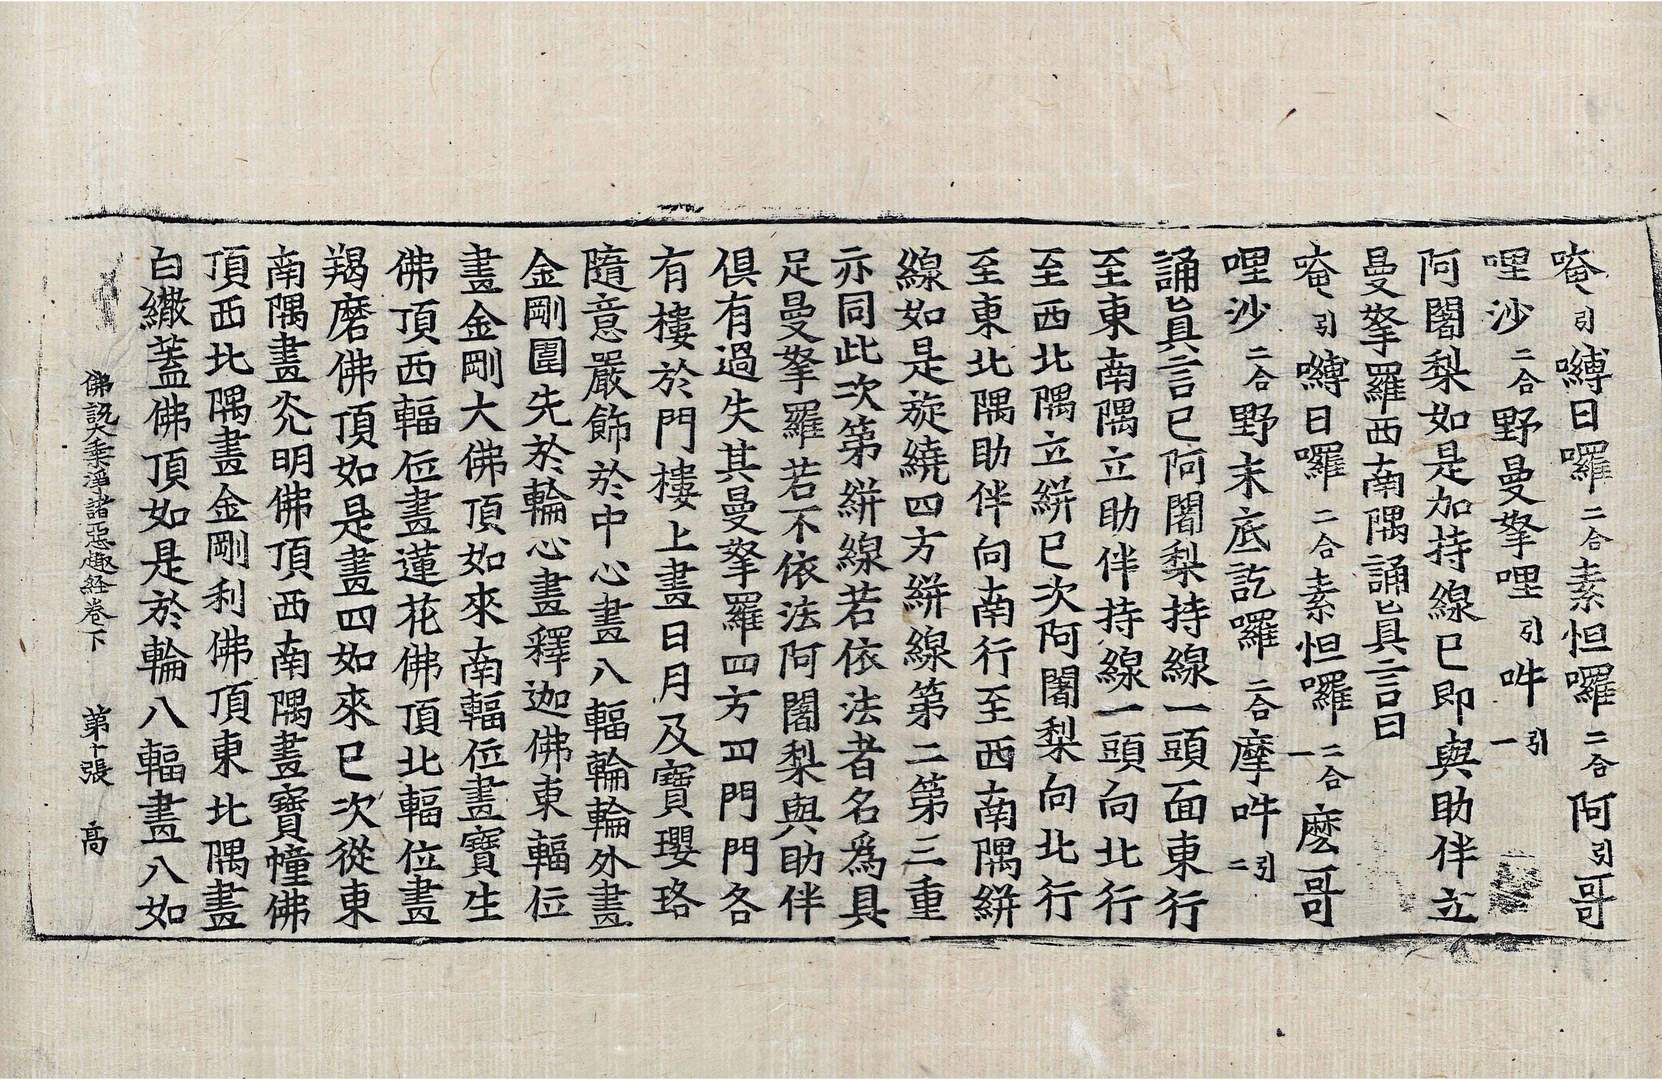 唵引嚩日囉二合素怛囉二合阿引哥
哩沙二合野曼拏哩引吽引一
阿闍梨如是加持線已即與助伴立
曼拏羅西南隅誦真言曰
唵引嚩日囉二合素怛囉二合一麽哥
哩沙二合野末底訖囉二合摩吽引二
誦真言已阿闍梨持線一頭面東行
至東南隅立助伴持線一頭向北行
至西北隅立絣已次阿闍梨向北行
至東北隅助伴向南行至西南隅絣
線如是旋繞四方絣線第二第三重
亦同此次第絣線若依法者名爲具
足曼拏羅若不依法阿闍梨與助伴
俱有過失其曼拏羅四方四門門各
有樓於門樓上畫日月及寶瓔珞
隨意嚴飾於中心畫八輻輪輪外畫
金剛圍先於輪心畫釋迦佛東輻位
畫金剛大佛頂如來南輻位畫寶生
佛頂西輻位畫蓮花佛頂北輻位畫
羯磨佛頂如是畫四如來已次從東
南隅畫光明佛頂西南隅畫寶幢佛
頂西北隅畫金剛利佛頂東北隅畫
白繖蓋佛頂如是於輪八輻畫八如
佛說大乘淨諸惡趣經卷下 第十張 高